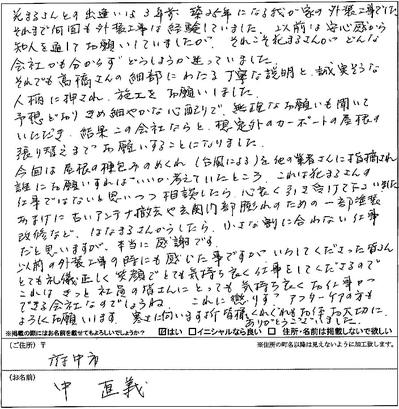 花まるさんとの出逢いは3年前 築25年になる我が家の外装工事でした。
それまで何回も外装工事は経験していました。以前は安心感から
知人を通してお願いしていましたが、それこそ花まるさんが どんな
会社かも分からず どうしようか迷っていました。
それでも高橋さんの細部にわたる丁寧な説明と、誠実そうな
人柄に押され、施工を お願いしました。
予想どおり きめ細やかな心配りで、無理なお願いも聞いて
いただき、結果この会社ならと、想定外のカーポートの屋根の
張り替えまで お願いすることになりました。
今回は屋根の棟包みのめくれ(台風による)を他の業者さんに指摘され
誰にお願いすればいいか考えていたところ、これは花まるさんの
仕事ではないと思いつつ相談したら 心良く引き受けて下さいました
あまけに古いアンテナ撤去や玄関内部膨れのための一部塗装
改修など、はなまるさんからしたら、小さな割に合わない仕事
だと思いますが、本当に感謝です。
以前の外装工事の時にも感じた事ですが いらしてくださった皆さん
とても礼儀正しく 笑顔でとても気持ち良く仕事をしてくださるので
これは きっと社員の皆さんにとっても気持ち良く お仕事が
できる会社なのでしょうね。 これに懲りず アフターケアの方も
よろしくお願いします 寒さに向います折 皆様くれぐれもお体お大切に。
ありがとうございました。
※掲載の際にはお名前を載せてもよろしいでしょうか? ☑はい □イニシャルなら良い □ 住所・名前は掲載しないで欲しい
(ご住所) 〒 ※住所の町名以降は見えないように加工致します。
府中市
(お名前)
中 直義